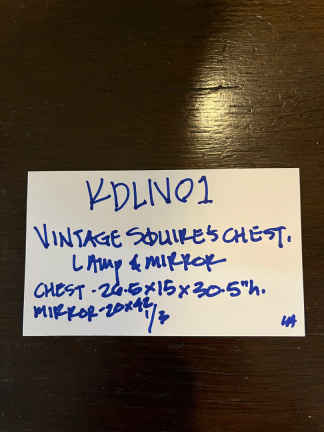 KDLIV01
VINTAGE SQUIRE'S CHEST.
LAMP & MIRROR
CHEST - 26.5 X 15 X 30.5"h.
MIRROR - 20 X 42
1/3